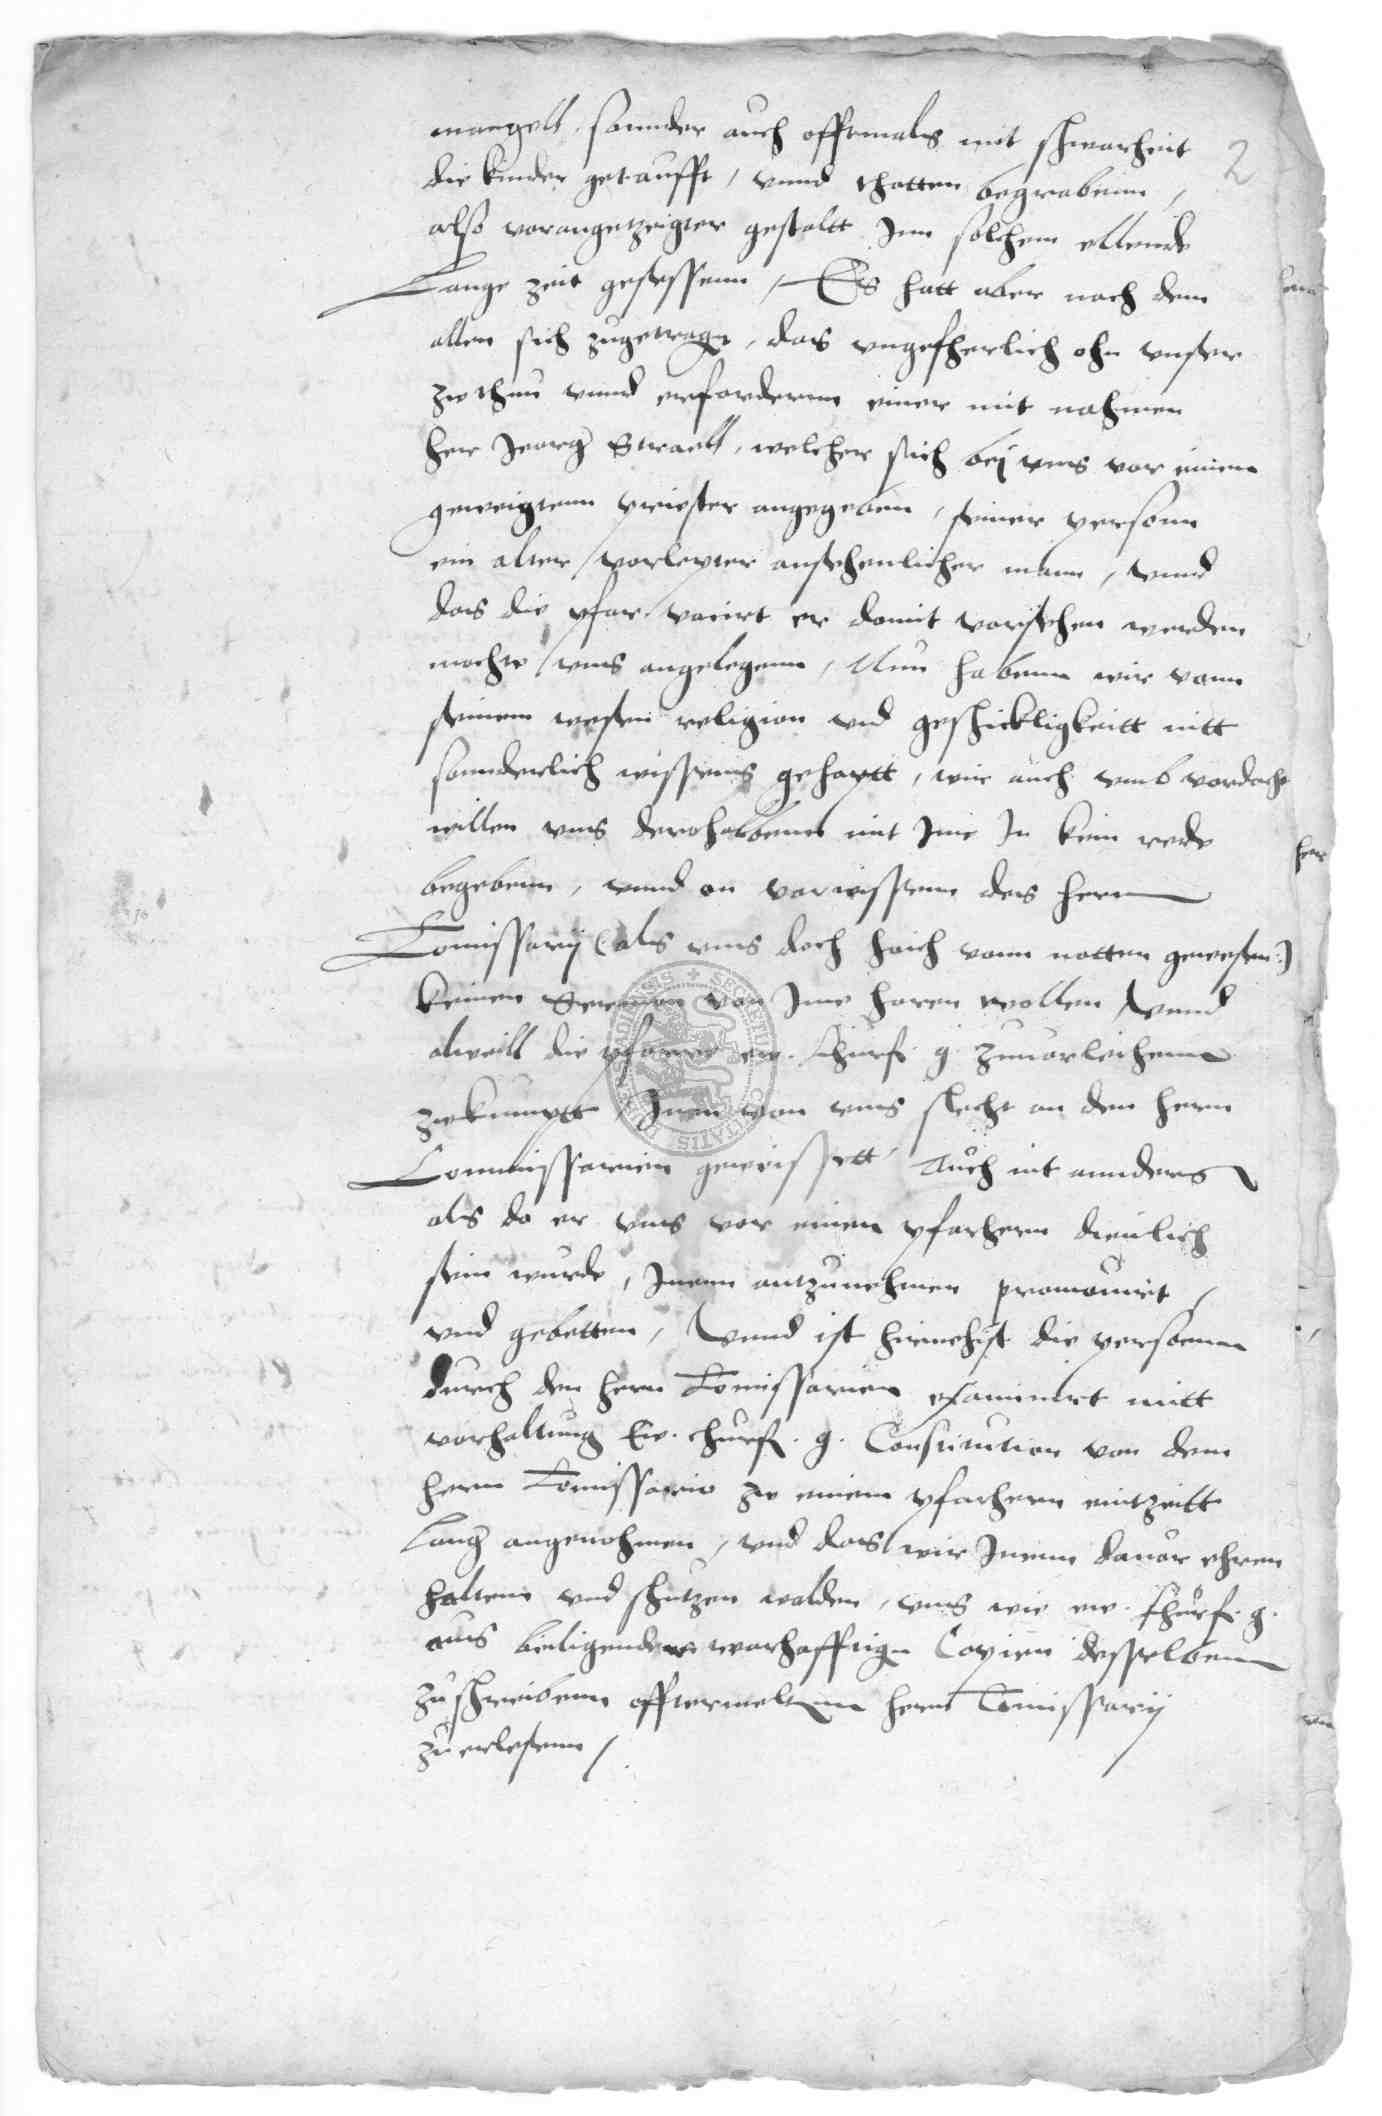 2
mangell, sonnder auch offtmals mit schwarheit
die kinder getaufft, vnnd thotten begrabenn,
also vorangetzeigter gestaltt Inn solchem ellende
Lange zeit gesessenn, Es hatt aber nach dem
allen sich zugetragn, das vngefherlich ohn vnser
zuthun vnnd erfordernn einer mit nahmen
her Jeorg Straell, welcher sich beij vns vor einen
geweigtenn priester angegeben, seiner personn
ein alter vorlepter ansehenlicher mann, vnnd
das die pfar vacirt er damit vorsehen werden
mochte vns angelegenn, Nun habenn wir vonn
seinem wesen religion vnd geschickligkeitt nitt
sonnderlich wissens gehaptt, wie auch vmb vordacht
willen vns derohalbenn mit Ime In kein rede
begebenn, vnnd on vorwissenn des hern
Comissarij (als vns doch hoich vonn notten gewesen)
keinen Sermon von Ime horen wollen vnnd
alweill die pfarre ew. churf. g. zuuorleihenn
zukumptt, Inen von vns slecht an den hern
Commissarien geweissett Auch nit annders
als do er vns vor einen pfarhern dienlich
sein wurde, Inenn antzunehmen promouirt,
vnd gebetten, Vnnd ist hirnehist die personn
durch den hern Comissarien examinirt mitt
vorhaltung Ew. churf. g. Constitution von dem
hern Comissario zu einem pfarhern eintzeitt
lang angenohmen, vnd das wir Inenn dauor ehren
haltenn vnd schutzen wolden, vns wie ew. churf. g.
aus beiligender warhafftign Copien desselbenn
zuschreibenn offtermeltenn hern Comissarij
zuerlesenn,
her
SECRETUM CIVITATIS